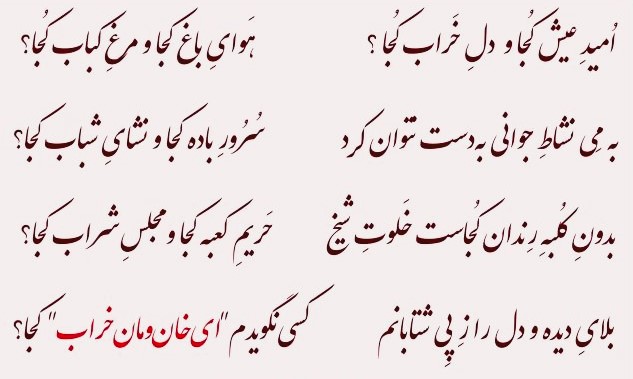 اُمیدِ عیش کُجا و دلِ خَراب کُجا ؟ هَوایِ باغ کجا و مرغِ کباب کُجا؟
به مِی نشاطِ جوانی به‌دست نتوان کرد سُرُورِ باده کجا و نشایِ شباب کجا؟
بدونِ کُلبهِ رِندان کُجاست خَلوتِ شیخ حَریمِ کعبه کجا و مجلسِ شراب کجا؟
بلایِ دیده و دل را زِ پِی شتابانم کسی نگویدم "ای خان‌ومان خراب" کجا؟